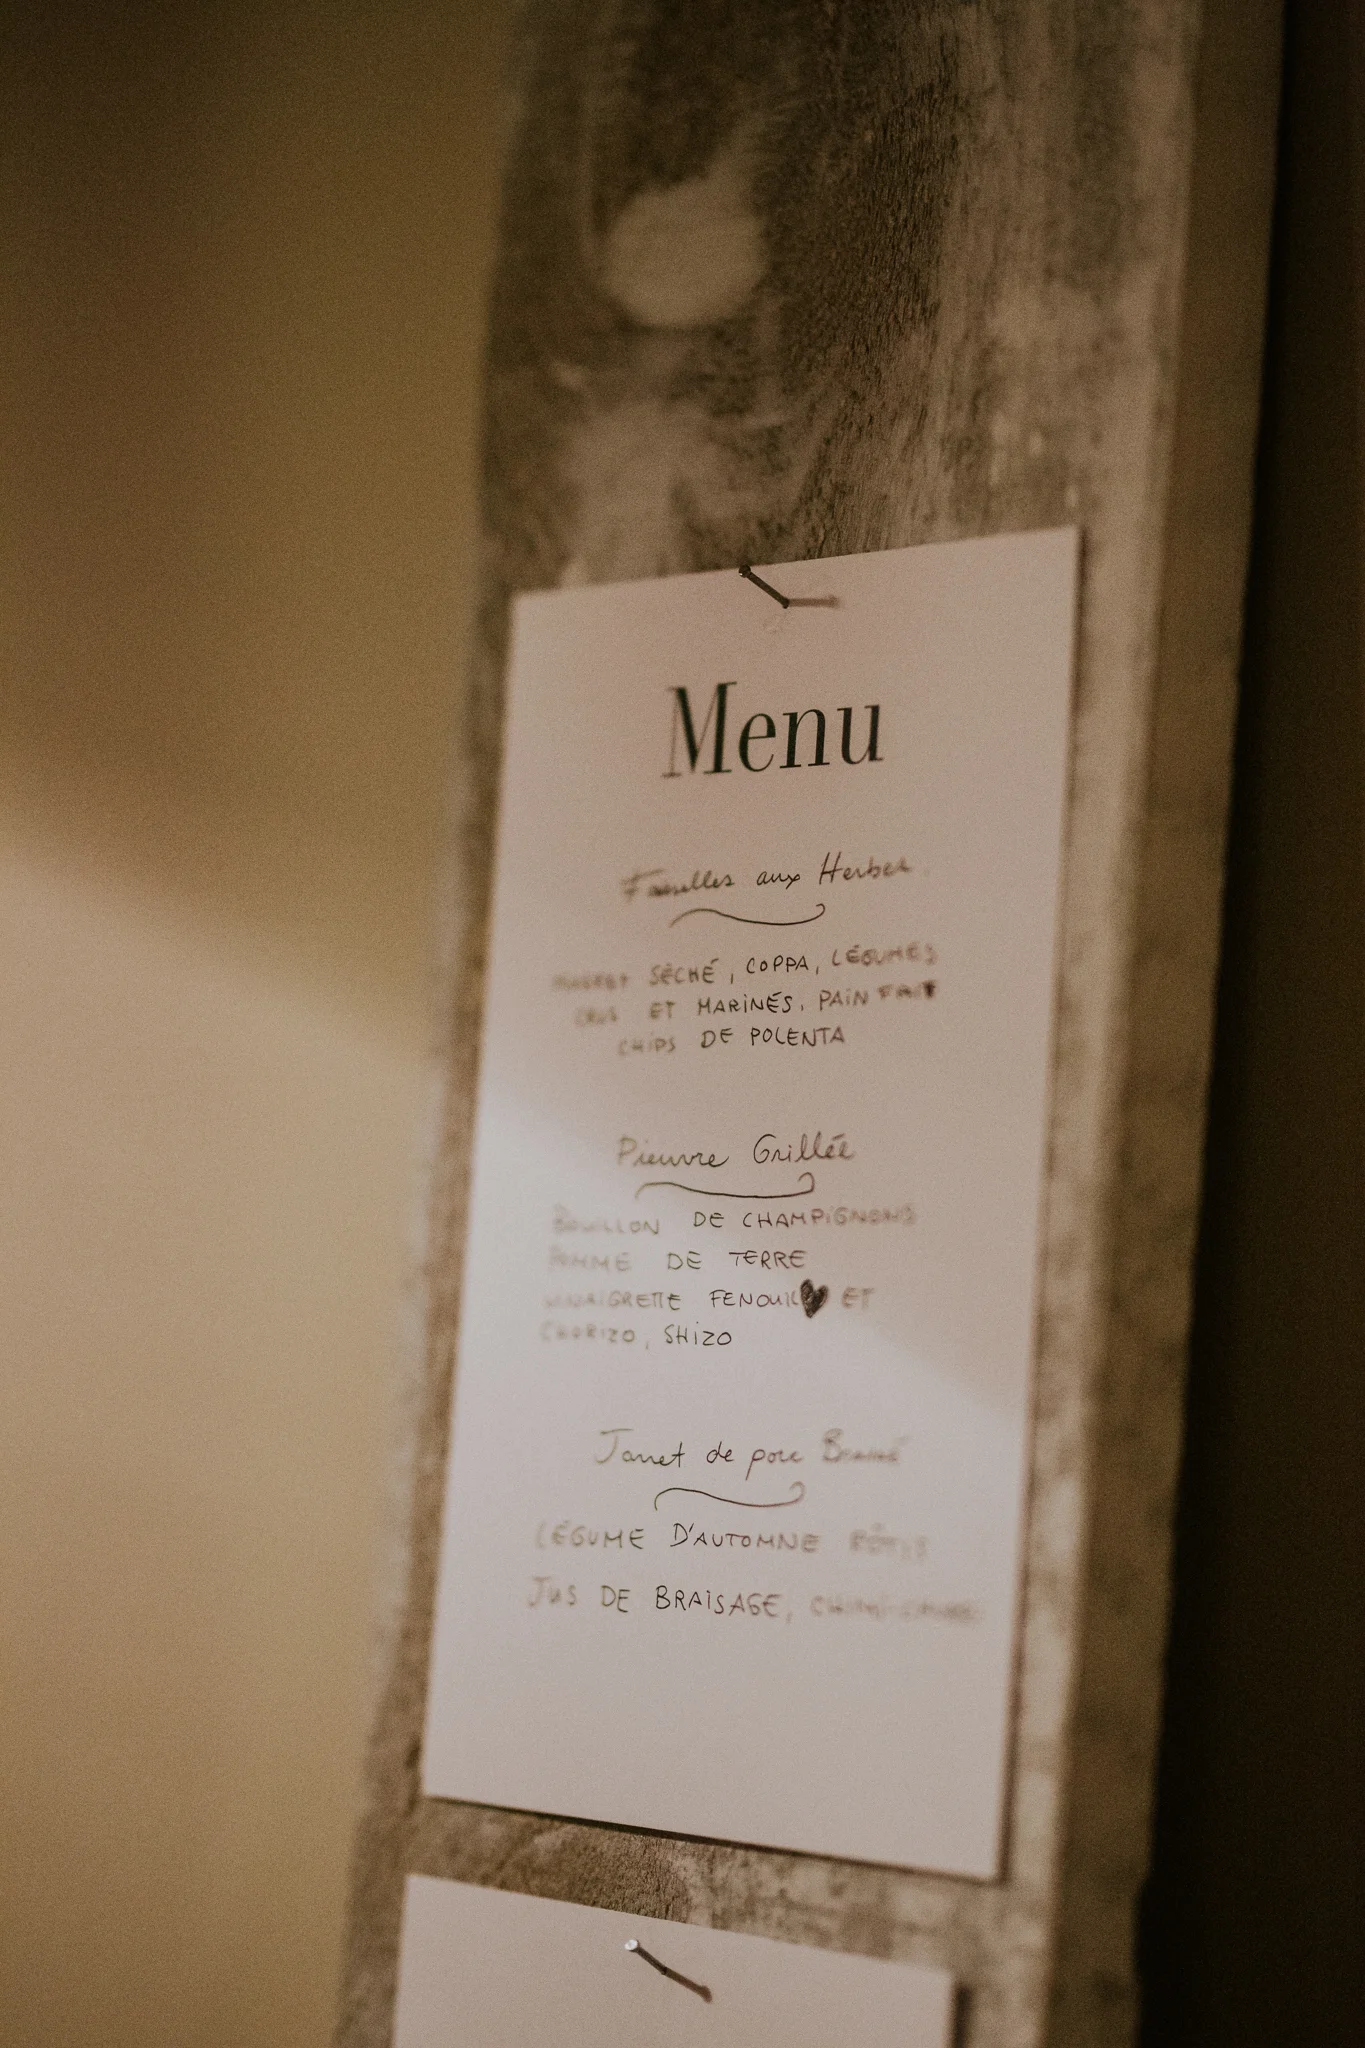 Menu
Faisselles aux Herbes
MAGRET SÉCHÉ, COPPA, LÉGUMES
CRUS ET MARINÉS, PAIN FAIT
CHIPS DE POLENTA
Pieuvre Grillée
BOUILLON DE CHAMPIGNONS
POMME DE TERRE
VINAIGRETTE FENOUIL ET
CHORIZO, SHIZO
Jarret de porc Braisé
LÉGUME D'AUTOMNE RÔTIS
JUS DE BRAISAGE,